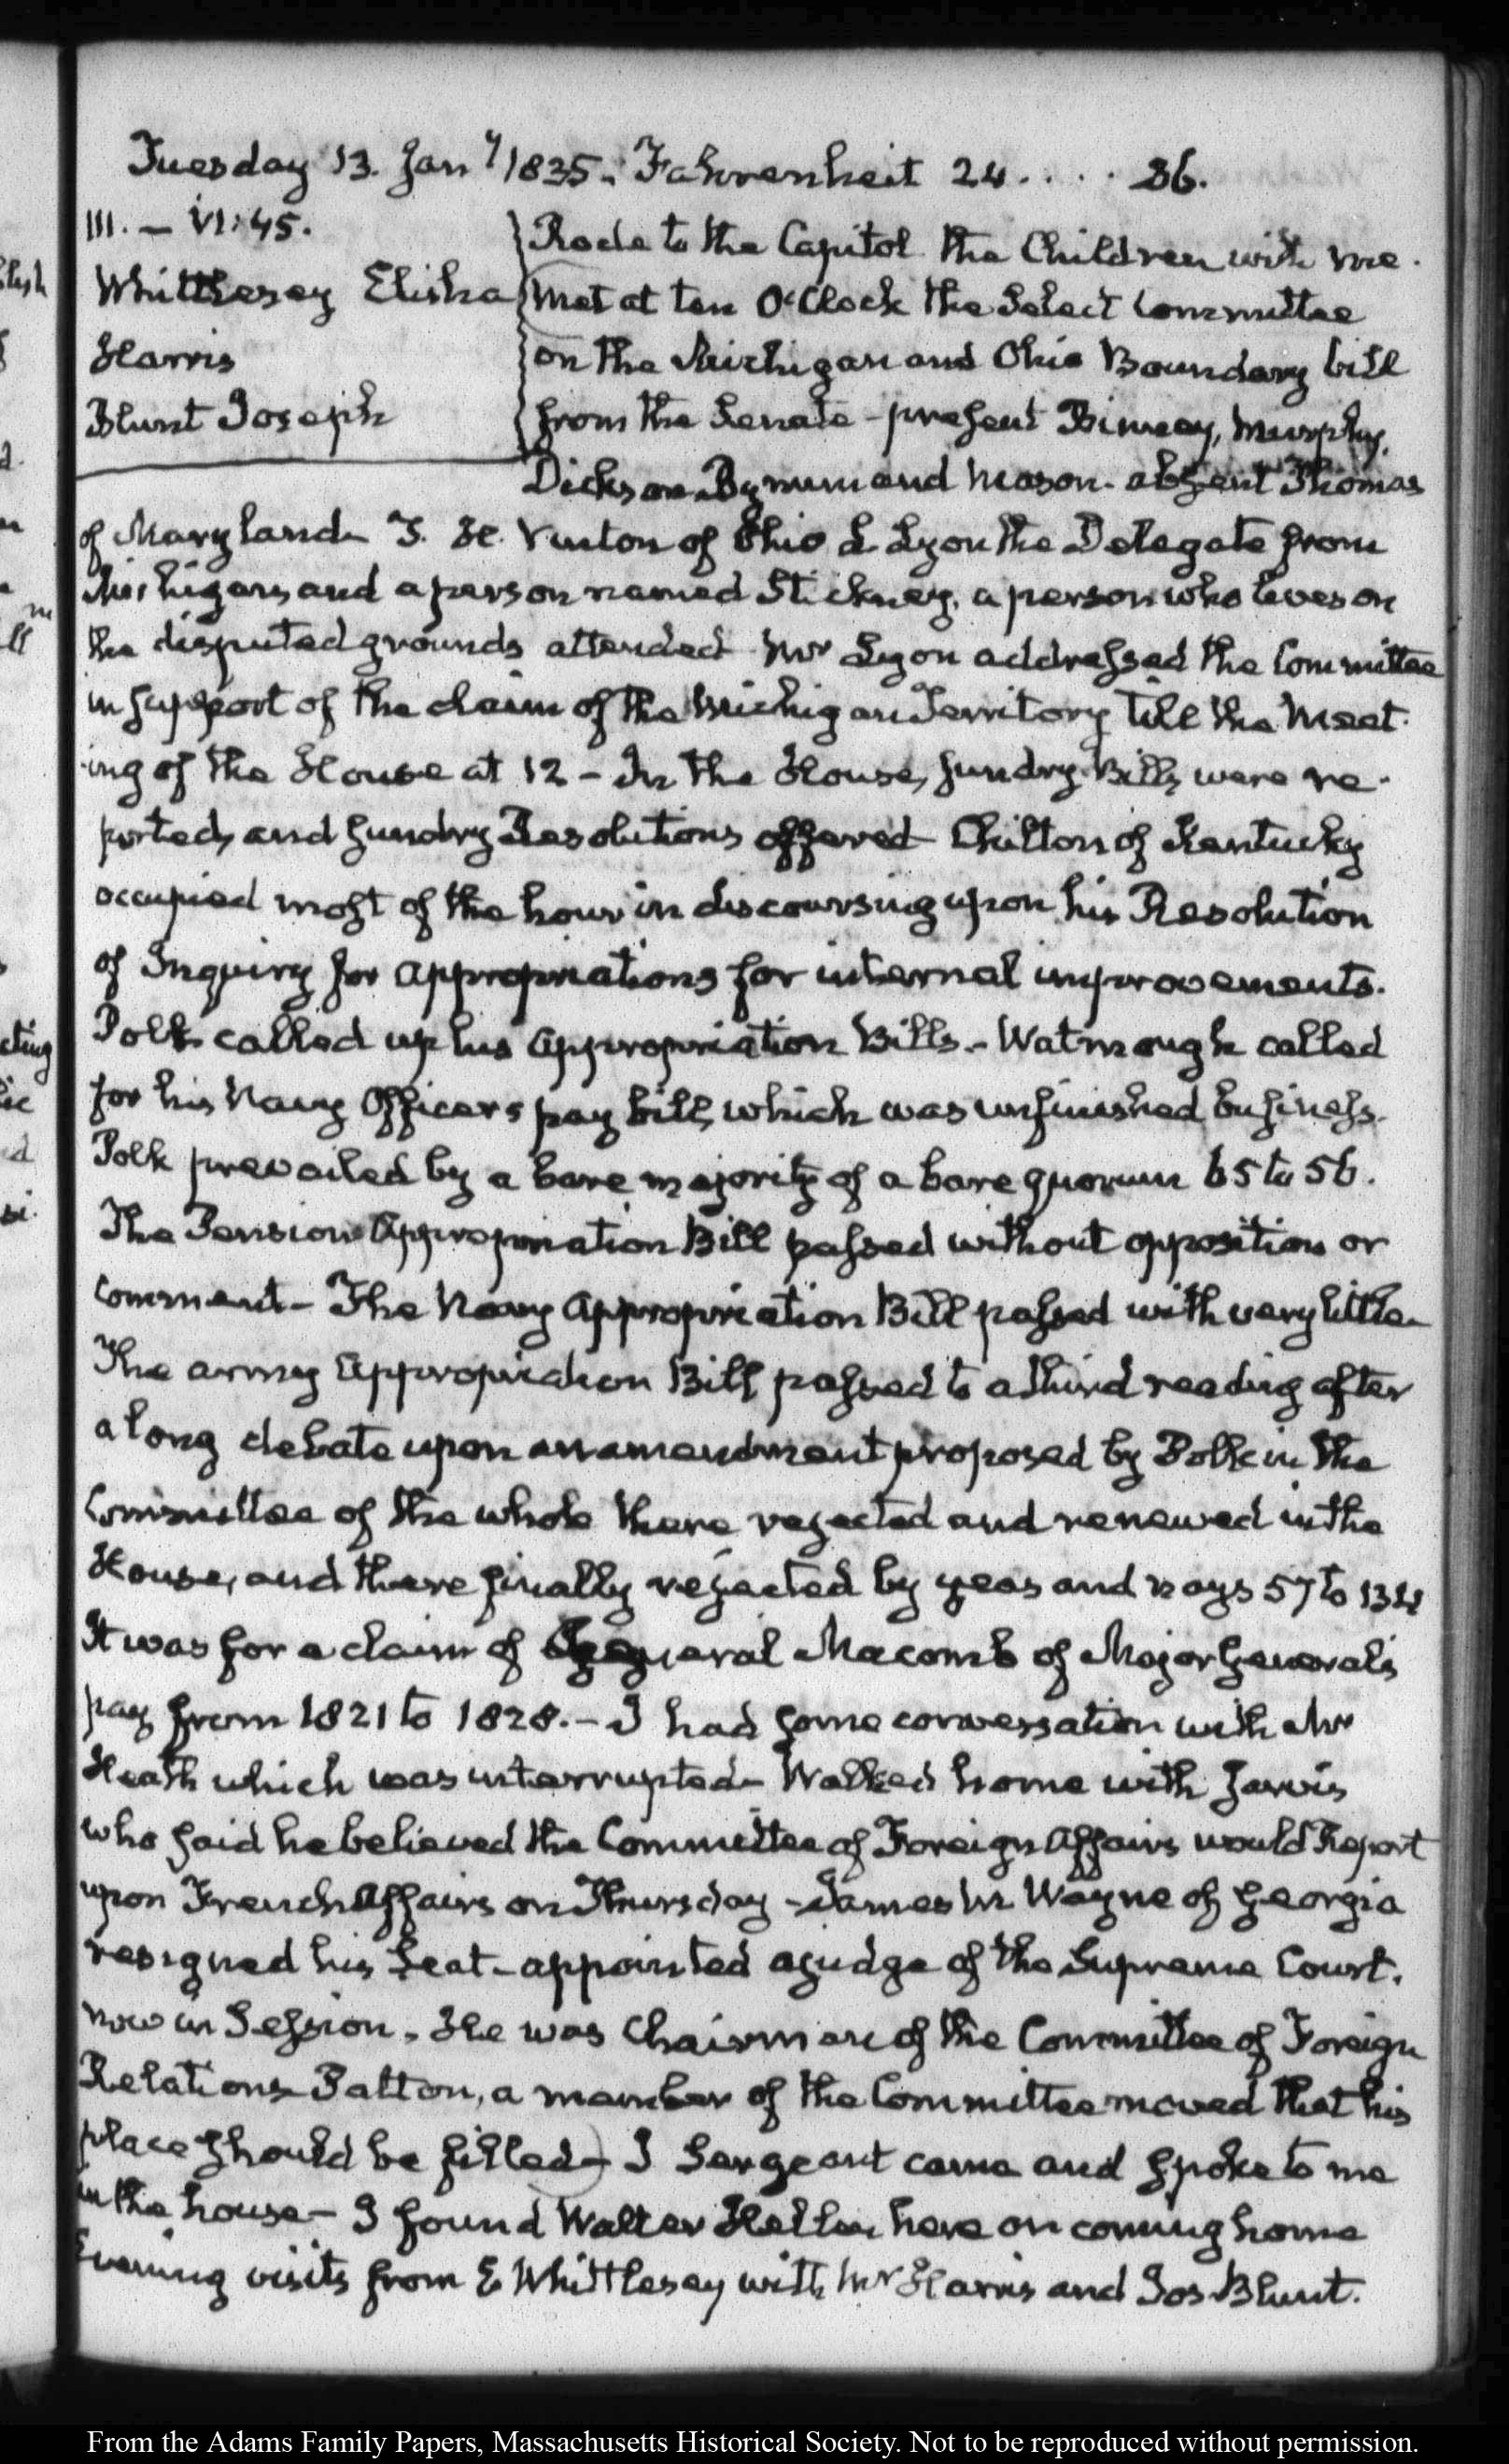 Tuesday 13. Jany 1835. Fahrenheit 24 . . . . 36.
III. — VI:45.
Whittlesey Elisha
Harris
Blunt Joseph
Rode to the Capitol the Children with me.
Met at ten O'Clock the Select Committee
on the Michigan and Ohio Boundary bill
from the Senate - present Binney, Murphy,
Dickson Bynum and Mason. absent Thomas
of Maryland - S. F. Vinton of Ohio L Lyon the Delegate from
Michigan, and a person named Stickney, a person who lives on
the disputed grounds attended Mr Lyon addressed the Committee
in support of the claim of the Michigan Territory till the Meet-
-ing of the House at 12 - In the House, sundry Bills were re-
ported, and sundry Resolutions offered Chilton of Kentucky
occupied most of the hour in discoursing upon his Resolution
of Inquiry for appropriations for internal improvements.
Polk called up his Appropriation Bills. - Watmough called
for his Navy Officers pay bill, which was unfinished business.
Polk prevailed by a bare majority of a bare quorum 65 to 56.
The Pension Appropriation Bill passed without opposition or
comment - The Navy Appropriation Bill passed with very little -
The army Appropriation Bill passed to a third reading after
a long debate upon an amendment proposed by Polk in the
Committee of the whole there rejected and renewed in the
House, and there finally rejected by yeas and nays 57 to 134
It was for a claim of General Macomb of Major General's
pay from 1821 to 1828. - I had some conversation with Mr
Heath which was interrupted - Walked home with Jarvis
who said he believed the Committee of Foreign Affairs would Report
upon French Affairs on Thursday - James M Wayne of Georgia
resigned his Seat - appointed a judge of the Supreme Court.
now in Session. He was Chairman of the Committee of Foreign
Relations Patton, a member of the Committee moved that his
place should be filled - J Sergeant came and spoke to me
in the house - I found Walter Hellen here on coming home
Evening visits from E Whittlesey with Mr Harris and Jos Blunt.
From the Adams Family Papers, Massachusetts Historical Society. Not to be reproduced without permission.